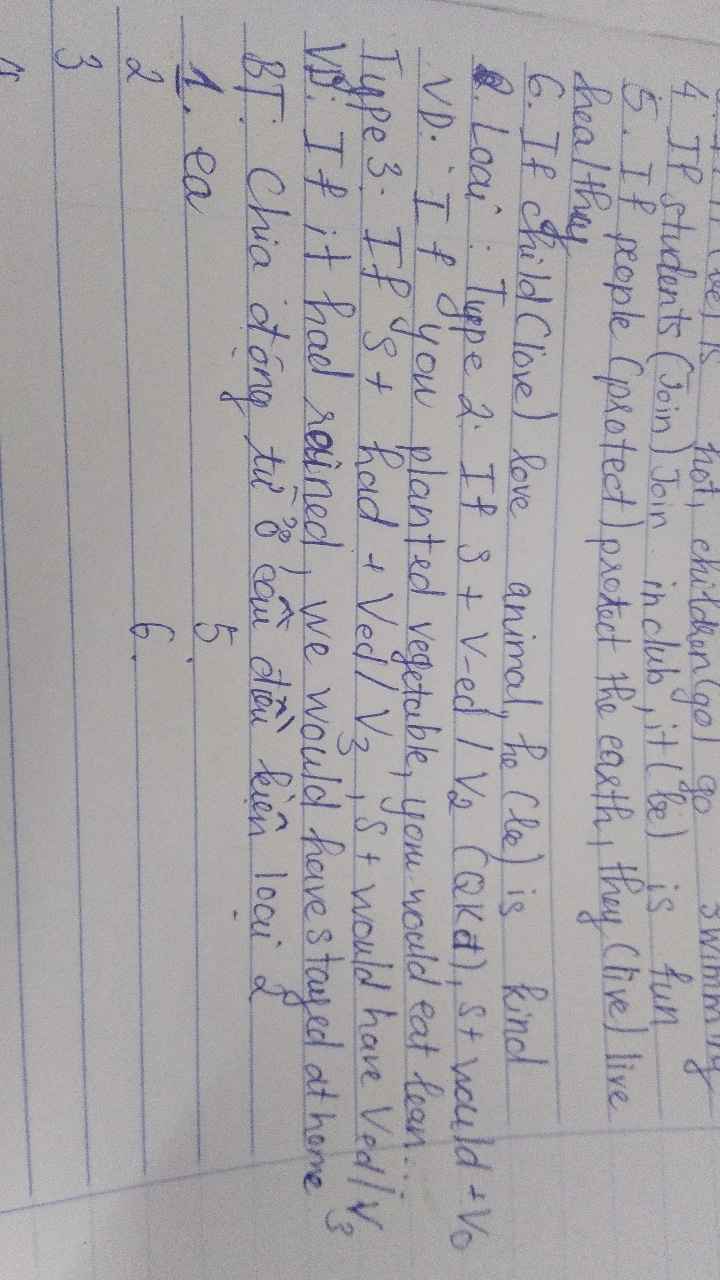 (be) is hot, children (go) go swimming
4 If students (Join) Join in club, it (be) is fun
5. If people (protect) protect the earth, they (live) live
healthy
6. If child (love) love animal, he (be) is kind
2. Loại : Type 2: If S + V-ed / V2 (QKđ), S+ would + V0
VD: If you planted vegetable, you would eat lean...
Type 3: If S + had + Ved / V3, S + would have Ved / V3
VD: If it had rained, we would have stayed at home
BT: Chia động từ ở câu điều kiện loại 2
1. ea 5.
2 6.
3